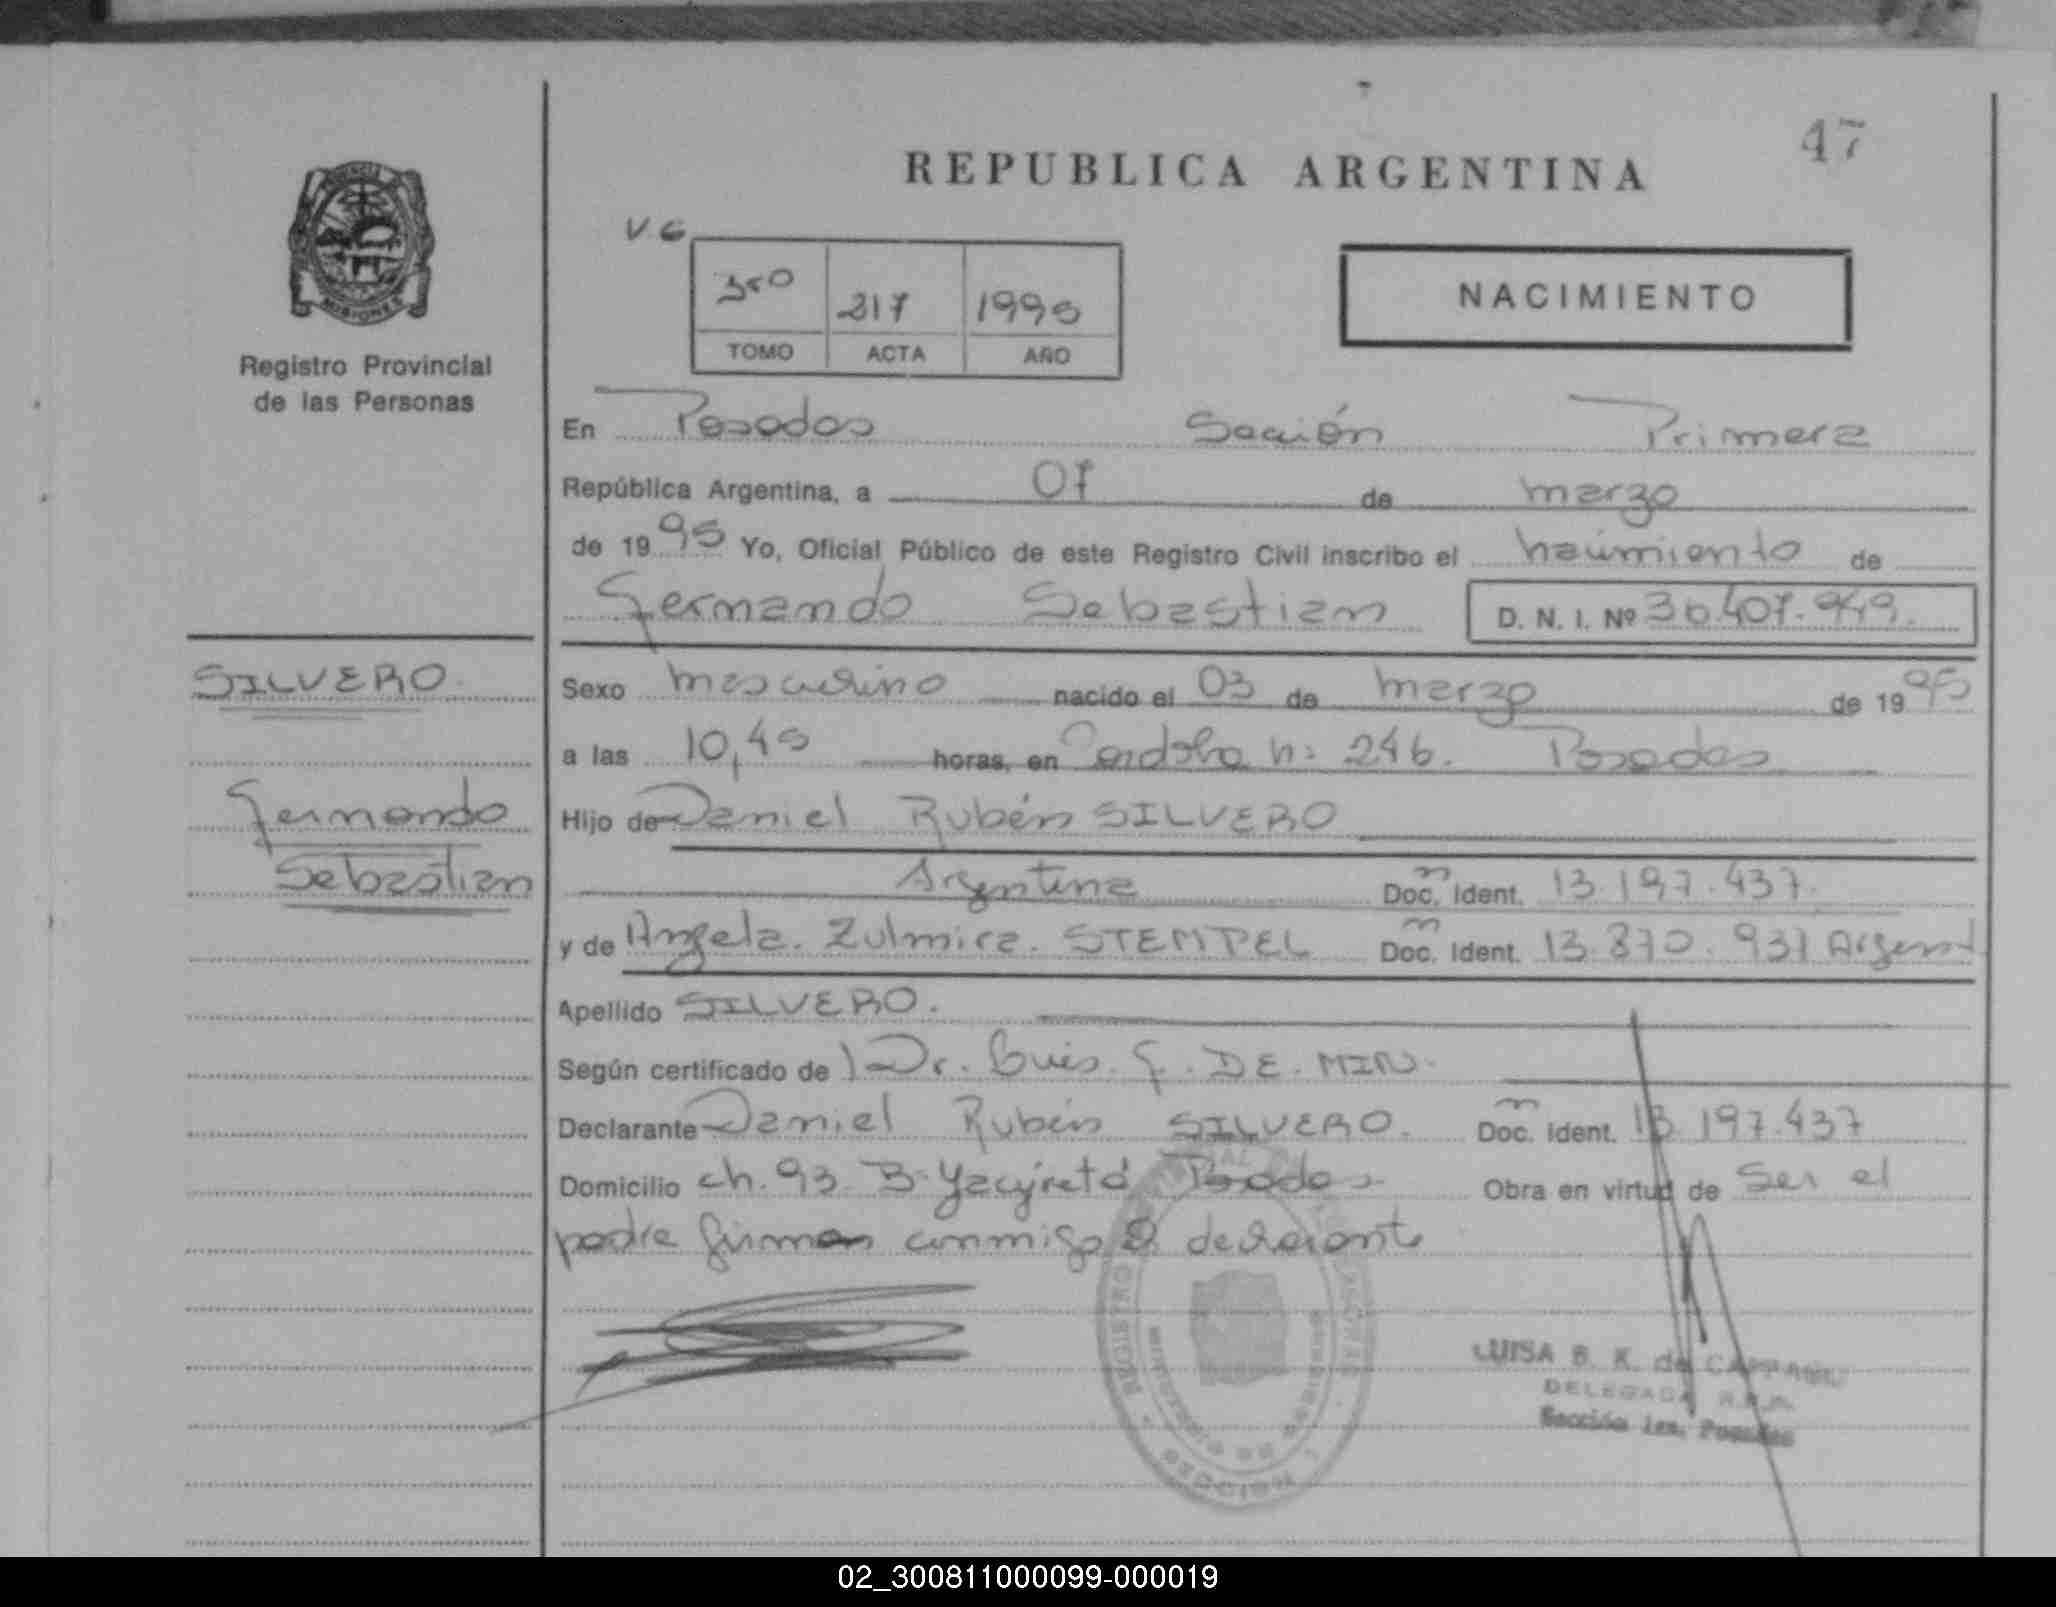 47
REPUBLICA ARGENTINA
V.G
3ro 217 1995
TOMO ACTA AÑO
NACIMIENTO
MISIONES
Registro Provincial
de las Personas
En Posadas Sección Primera
República Argentina, a 07 de marzo
de 1995 Yo, Oficial Público de este Registro Civil inscribo el nacimiento de
Fernando Sebastian D. N. I. Nº
SILVERO.
Sexo masculino nacido el 03 de marzo de 1995
a las 10,45 horas, en Cordoba n: 246. Posadas
Fernando
Hijo de Daniel Rubén SILVERO
Sebastian
Argentina Doc. Ident. 13.197.437.
y de Angela. Zulmira. STEMPEL Doc. Ident. 13.870.937 Argent
Apellido SILVERO.
Según certificado de Dr. Luis. F. DE. MIN.
Declarante Daniel Rubén SILVERO. Doc. Ident. 13.197.437
Domicilio ch. 93. B. Yacyretá Posadas Obra en virtud de ser el
padre firman conmigo declarante
REGISTRO
LUISA B. K. de
DELEGADA R.P.P.
Sección 1ra. Posadas
SECCION
02_300811000099-000019